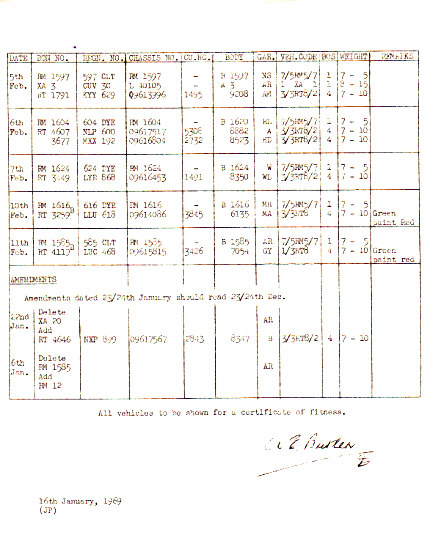 DATE BON NO. REGN. NO. CHASSIS NO. CH.NO. BODY GAR. VEH.CODE BOS WEIGHT REMARKS
5th RM 1597 597 CLT RM 1597 - B 1597 NS 7/5RM5/7 1 7 - 5
Feb. XA 3 CUV 3C L 40105 - A 3 AR 1 XA 1 1 8 - 15
RT 1791 KYY 629 09613996 1455 9208 AM 3/3RT8/2 4 7 - 10
6th RM 1604 604 DYE RM 1604 - B 1620 HL 7/5RM5/7 1 7 - 5
Feb. RT 4607 NLP 600 09617517 5308 8882 A 3/3RT8/2 4 7 - 10
3677 MXX 192 09616804 2732 8523 HD 3/3RT8/2 4 7 - 10
7th RM 1624 624 DYE RM 1624 - B 1624 W 7/5RM5/7 1 7 - 5
Feb. RT 3149 LYR 868 09616453 1491 8350 WL 3/3RT8/2 4 7 - 10
10th RM 1616 616 DYE RM 1616 - B 1616 MH 7/5RM5/7 1 7 - 5
Feb. RT 3259 LLU 618 09614086 3845 6135 MA 3/3RT8 4 7 - 10 Green
paint Red
11th RM 1585 585 CLT RM 1585 - B 1585 AR 7/5RM5/7 1 7 - 5
Feb. RT 4119 LUC 468 09615815 3426 7054 GY 1/3RT8 4 7 - 10 Green
paint red
AMENDMENTS
Amendments dated 23/24th January should read 23/24th Dec.
22nd Delete
Jan. XA 20 AR
Add
RT 4646 NXP 899 09617567 2843 8347 B 3/3RT8/2 4 7 - 10
6th Delete
Jan. RM 1585 AR
Add
RM 12
All vehicles to be shown for a certificate of fitness.
16th January, 1969
(JP)